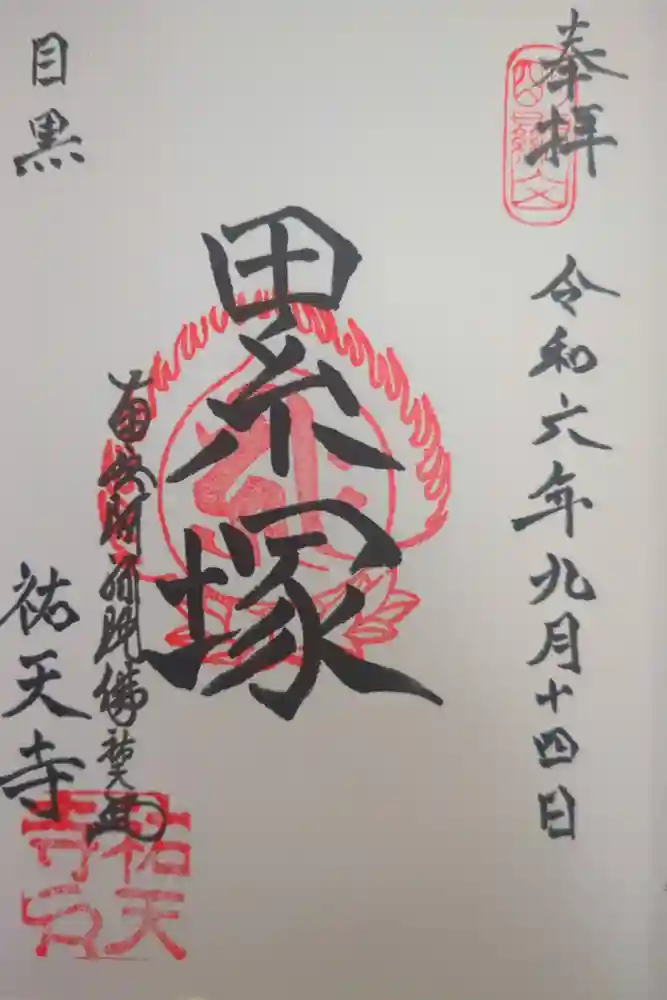 奉拝
令和六年九月十四日
累塚
南無阿弥陀佛
祐天
目黒
祐天寺
祐天
寺印